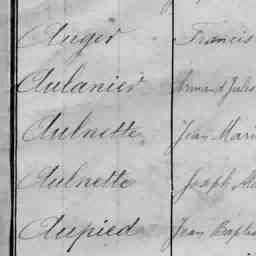 Auger Francis
Aulanier Armand Jules
Aulnette Jean Mari
Aulnette Joseph M
Aupied Jean Baptis